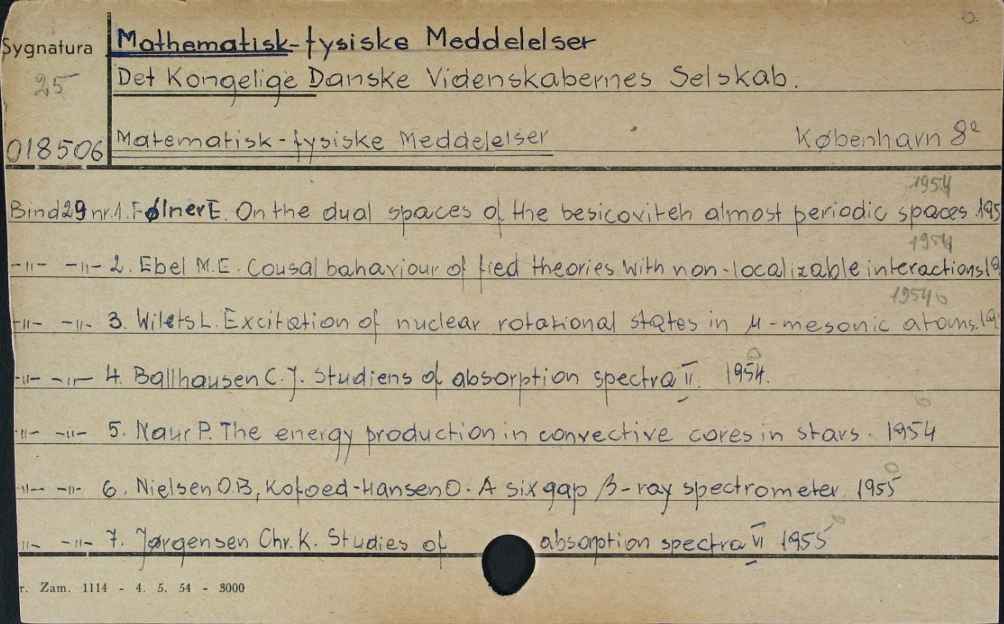 Sygnatura Mathematisk-fysiske Meddelelser
25 Det Kongelige Danske Videnskabernes Selskab.
018506 Matematisk-fysiske Meddelelser København 8º
1954
Bind 29 nr.1. Følner E. On the dual spaces of the besicoviteh almost periodic spaces. 195
1954
-"- -"- 2. Ebel M.E. Cousal bahaviour of fied theories with non-localizable interactions 19
1954
-"- -"- 3. Wilets L. Excitation of nuclear rotational states in μ-mesonic atoms. 19
-"- -"- 4. Ballhausen C.J. Studiens of absorption spectra II. 1954.
-"- -"- 5. Naur P. The energy production in convective cores in stars. 1954
-"- -"- 6. Nielsen O.B, Kofoed-Hansen O. A six gap β-ray spectrometer. 1955
-"- -"- 7. Jørgensen Chr. K. Studies of absorption spectra VI 1955
r. Zam. 1114 - 4. 5. 54 - 3000